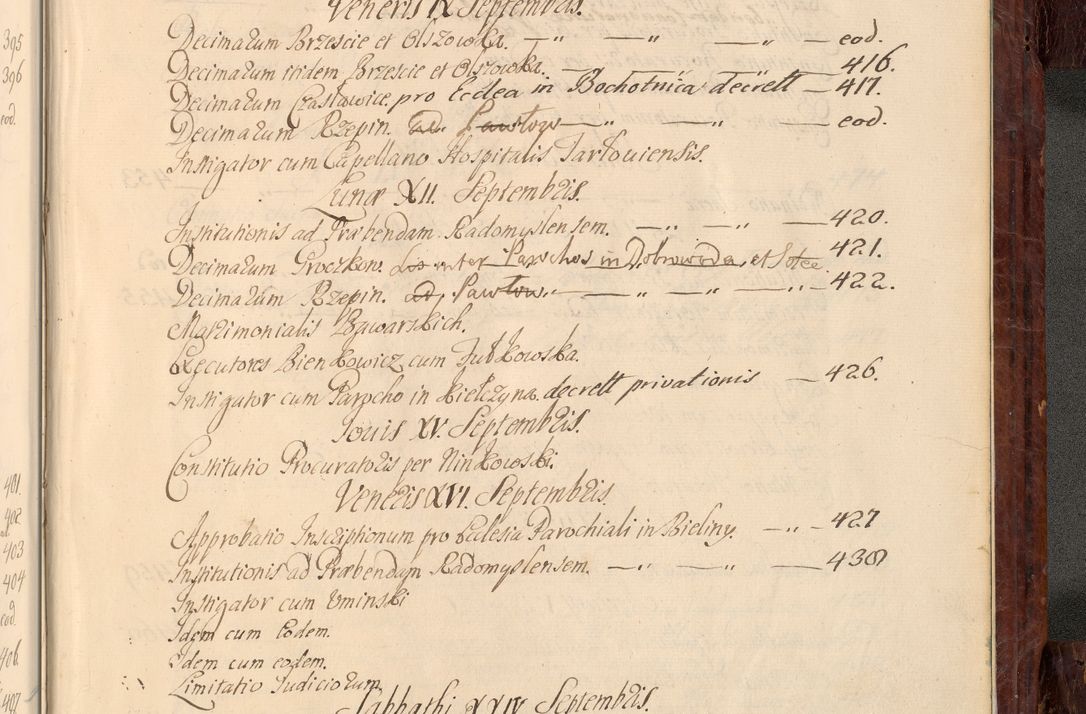 Veneris IX Septembris.
Decimarum Brzescie et Olszowka. — „ — „ — „ — eod.
Decimarum itidem Brzescie et Olszowka. — „ — „ — 416.
Decimarum Czastowice. pro Ecclea in Bochotnica decrett — 417.
Decimarum Rzepin. ad. Pawłow — „ — „ — eod.
Instigator cum Capellano Hospitalis Tarłoviensis.
Lunæ XII. Septembris.
Institutionis ad Præbendam Radomyslensem. — „ — „ — 420.
Decimarum Groczkow inter Parochos in Dobrowoda, et 421.
Decimarum Rzepin. ad. Pawłow. — „ — „ — 422.
Matrimonialis Bawarskich.
Executores Bienkowicz cum Jutkowska.
Instigator cum Parocho in Kiełczyna. decrett privationis — 426.
Jouis XV. Septembris.
Constitutio Procuratoris per Ninkowski.
Veneris XVI. Septembris
Approbatio Inscriptionum pro Eclesia Parochiali in Bieliny. — „ — 427
Institutionis ad Præbendam Radomyslensem. — „ — „ — 430
Instigator cum Uminski
Idem cum Eodem.
Idem cum eodem.
Limitatio Judiciorum
Sabbathi XXIV Septembris.
395
396
eod.
401.
402.
403
404
eod.
406.
407